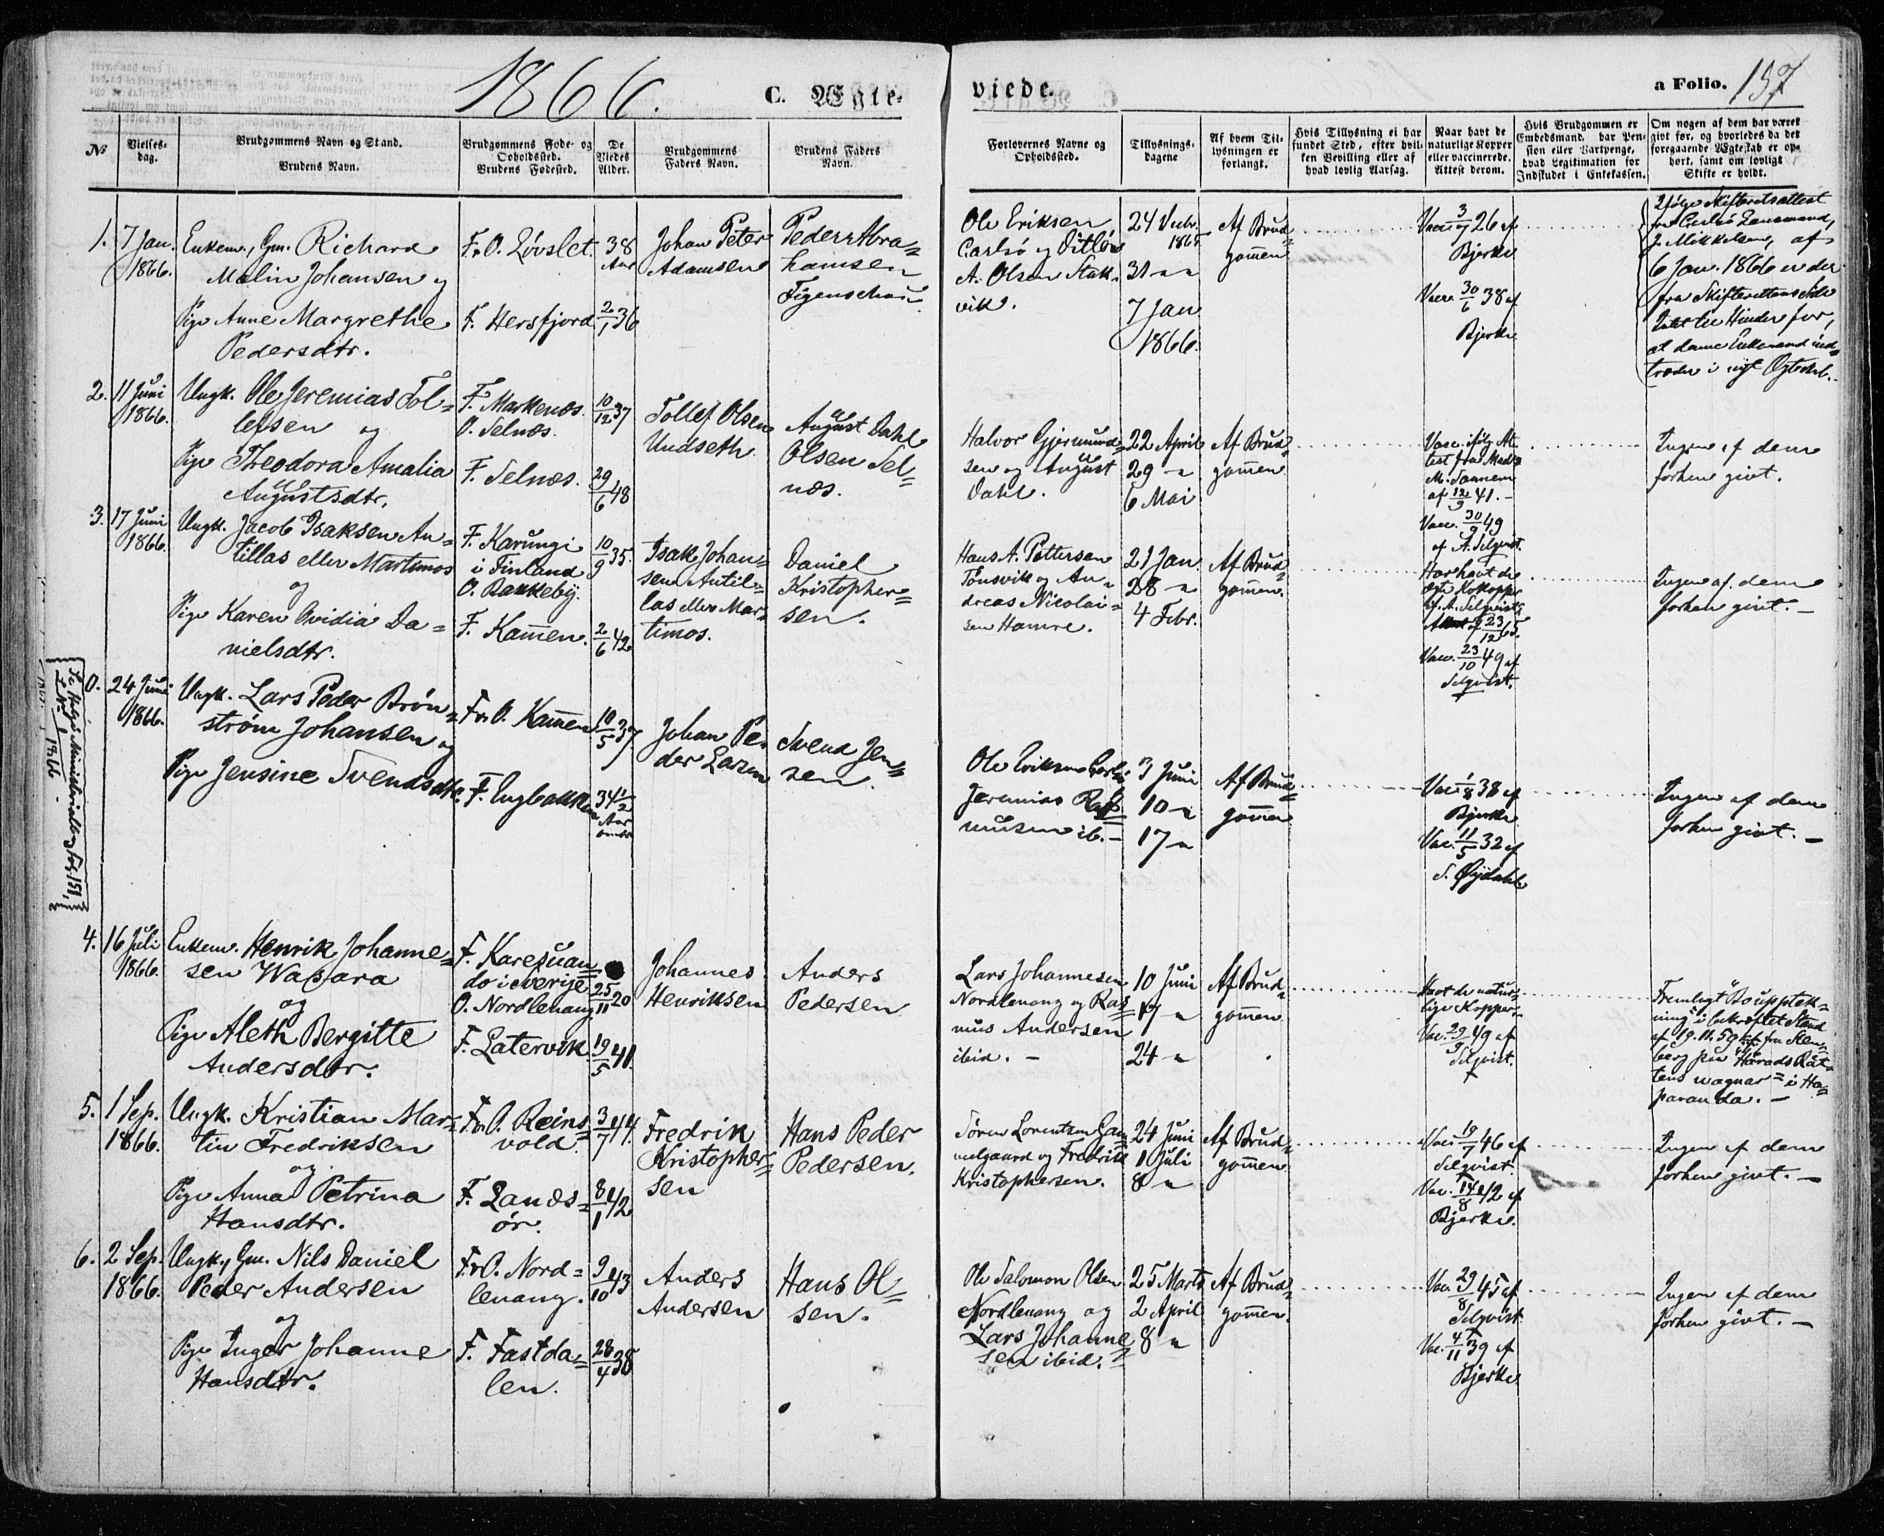 1866.
C. Ægte-
viede.
a Folio. 137
No
Vielses-
dag.
Brudgommens Navn og Stand.
Brudens Navn.
Brudgommens Føde- og
Opholdssted.
Brudens Fødested.
De
Viedes
Alder.
Brudgommens
Faders Navn.
Brudens Faders
Navn.
Forlovernes Navne og
Opholdssted.
Tillysnings-
dagene
Af hvem Til-
lysningen er
forlangt.
Hvis Tillysning ei har
fundet Sted, efter hvil-
ken Bevilling eller af
hvad lovlig Aarsag.
Naar havt de
naturlige Kopper
eller vaccinerede.
Attest derom.
Hvis Brudgommen er
Embedsmand, har Pen-
sion eller Vartpenge,
hvad Legitimation for
Indskudet i Enkekassen.
Om nogen af dem har været
givt før, og hvorledes da det
foregaaende Ægteskab er op-
hørt, samt om lovligt
Skifte er holdt.
1.
7 Jan.
1866.
Enkem., Gm. Richard
Malin Johansen og
Pige Anne Margrethe
Pedersdtr.
F. O. Løvslet.
F. Hersfjord
38
Aar
2/1 36
Johan Peter
Adamsen
Peder Abra-
hamsen
Figenschau
Ole Eriksen
Carlsö og Ditlev
A. Olsen Stak-
vik.
24 Decbr.
1865
31 "
7 Jan
1866.
Af Brud-
gommen
Vacc. 3/7 26 af
Bjerke
Vacc. 30/6 38 af
Bjerke
Ifølge Skifteretsattest
fra Carlsö Lensmand,
J. Mikkelsen, af
6 Jan. 1866 er der
fra Skifterettens Side
Intet til Hinder for,
at denne Enkemand ind-
træder i nyt Ægteskab.
2.
11 Juni
1866.
Ungk. Ole Jeremias Tol-
lefsen og
Pige Theodora Amalia
Augustsdtr.
F. Markenæs.
O. Selnæs.
F. Selnæs.
10/12 37
29/6 48
Tollef Olsen
Undseth
August Dahl
Olsen Sel-
næs.
Halvor Gjermund-
sen og August
Dahl.
22 April
29 "
6 Mai
Af Brud-
gommen
Vacc. ifølg At-
test fra
af 12/9 41.
Vacc. 30/9 49
af A. Selqvist.
Ingen af dem
forhen givt.
3.
17 Juni
1866.
Ungk. Jacob Isaksen An-
tillas eller Martimos
og
Pige Karen Ovidia Da-
nielsdtr.
F. Karungi
i Finland
O. Bakkeby.
F. Kammen.
10/9 35.
2/6 42
Isak Johan-
sen Antil-
las eller Mar-
timos.
Daniel
Kristopher-
sen.
Hans A. Pettersen
Tønsvik og An-
dreas Nicolai-
sen Hamre.
21 Jan
28 "
4 Febr.
Af Brud-
gommen.
Har havt de
ægte Kokopper
af A. Selqvist
23/12 65.
Vacc. 23/10 49 af
Selqvist.
Ingen af dem
forhen givt.
0.
24 Juni
1866.
Ungk. Lars Peder Brøn-
strøm Johansen og
Pige Jensine Svendsdtr.
F. O. Kammen
F. Engbakken
10/5 37
34 1/2
Aar
Johan Pe-
der Larsen
Svend Jen-
sen.
Ole Eriksen Carlsö
Jeremias Ras-
mussen ib.
3 Juni
10 "
17 "
Af Brud-
gommen
Vacc. 1/8 38 af
Bjerke
Vacc. 11/5 32 af
S. Øydahl
Ingen af dem
forhen givt.
1866
4.
16 Juli
1866.
Enkem. Henrik Johanne-
sen Wasara
og
Pige Aleth Bergitte
Andersdtr.
F. Karesuan-
do i Sverige
O. Nordlenang
F. Latervik
25/11 20
19/5 41.
Johannes
Henriksen
Anders
Pedersen
Lars Johannesen
Nordlenang og Ras-
mus Andersen
ibid.
10 Juni
17 "
24 "
Af Brud-
gommen
Havt de natur-
lige Kopper.
Vacc. 29/9 49 af
Selqvist.
Fremlagt "Boupptek-
ning" i bekræftet Stand
af 19.11.59 fra Sten-
berg
i Ha-
paranda.
5.
1 Sep.
1866.
Ungk. Kristian Mar-
tin Fredriksen
og
Pige Anna Petrina
Hansdtr.
F. O. Reins-
vold.
F. Lanæs-
ör.
3/7 44.
8/1 42
Fredrik
Kristopher-
sen
Hans Peder
Pedersen.
Sören Lorentzen Gam-
melgaard og Fredrik
Kristophersen.
24 Juni
1 Juli
8 "
Af Brud-
gommen
Vacc. 19/7 46 af
Selqvist.
Vac. 14/8 42 af
Bjerke.
Ingen af dem
forhen givt.
6.
2 Sep.
1866.
Ungk., Gm. Nils Daniel
Peder Andersen
og
Pige Inger Johanne
Hansdtr.
F. O. Nord-
lenang.
F. Fastda-
len.
9/10 43
28/4 38
Anders
Andersen
Hans Ol-
sen.
Ole Salomon Olsen
Nordlenang og
Lars Johanne-
sen ibid.
25 Marts
2 April
8 "
Af Brud-
gommen.
Vac. 29/8 45 af
Selqvist.
Vac. 4/11 39 af
Bjerke
Ingen af dem
forhen givt.